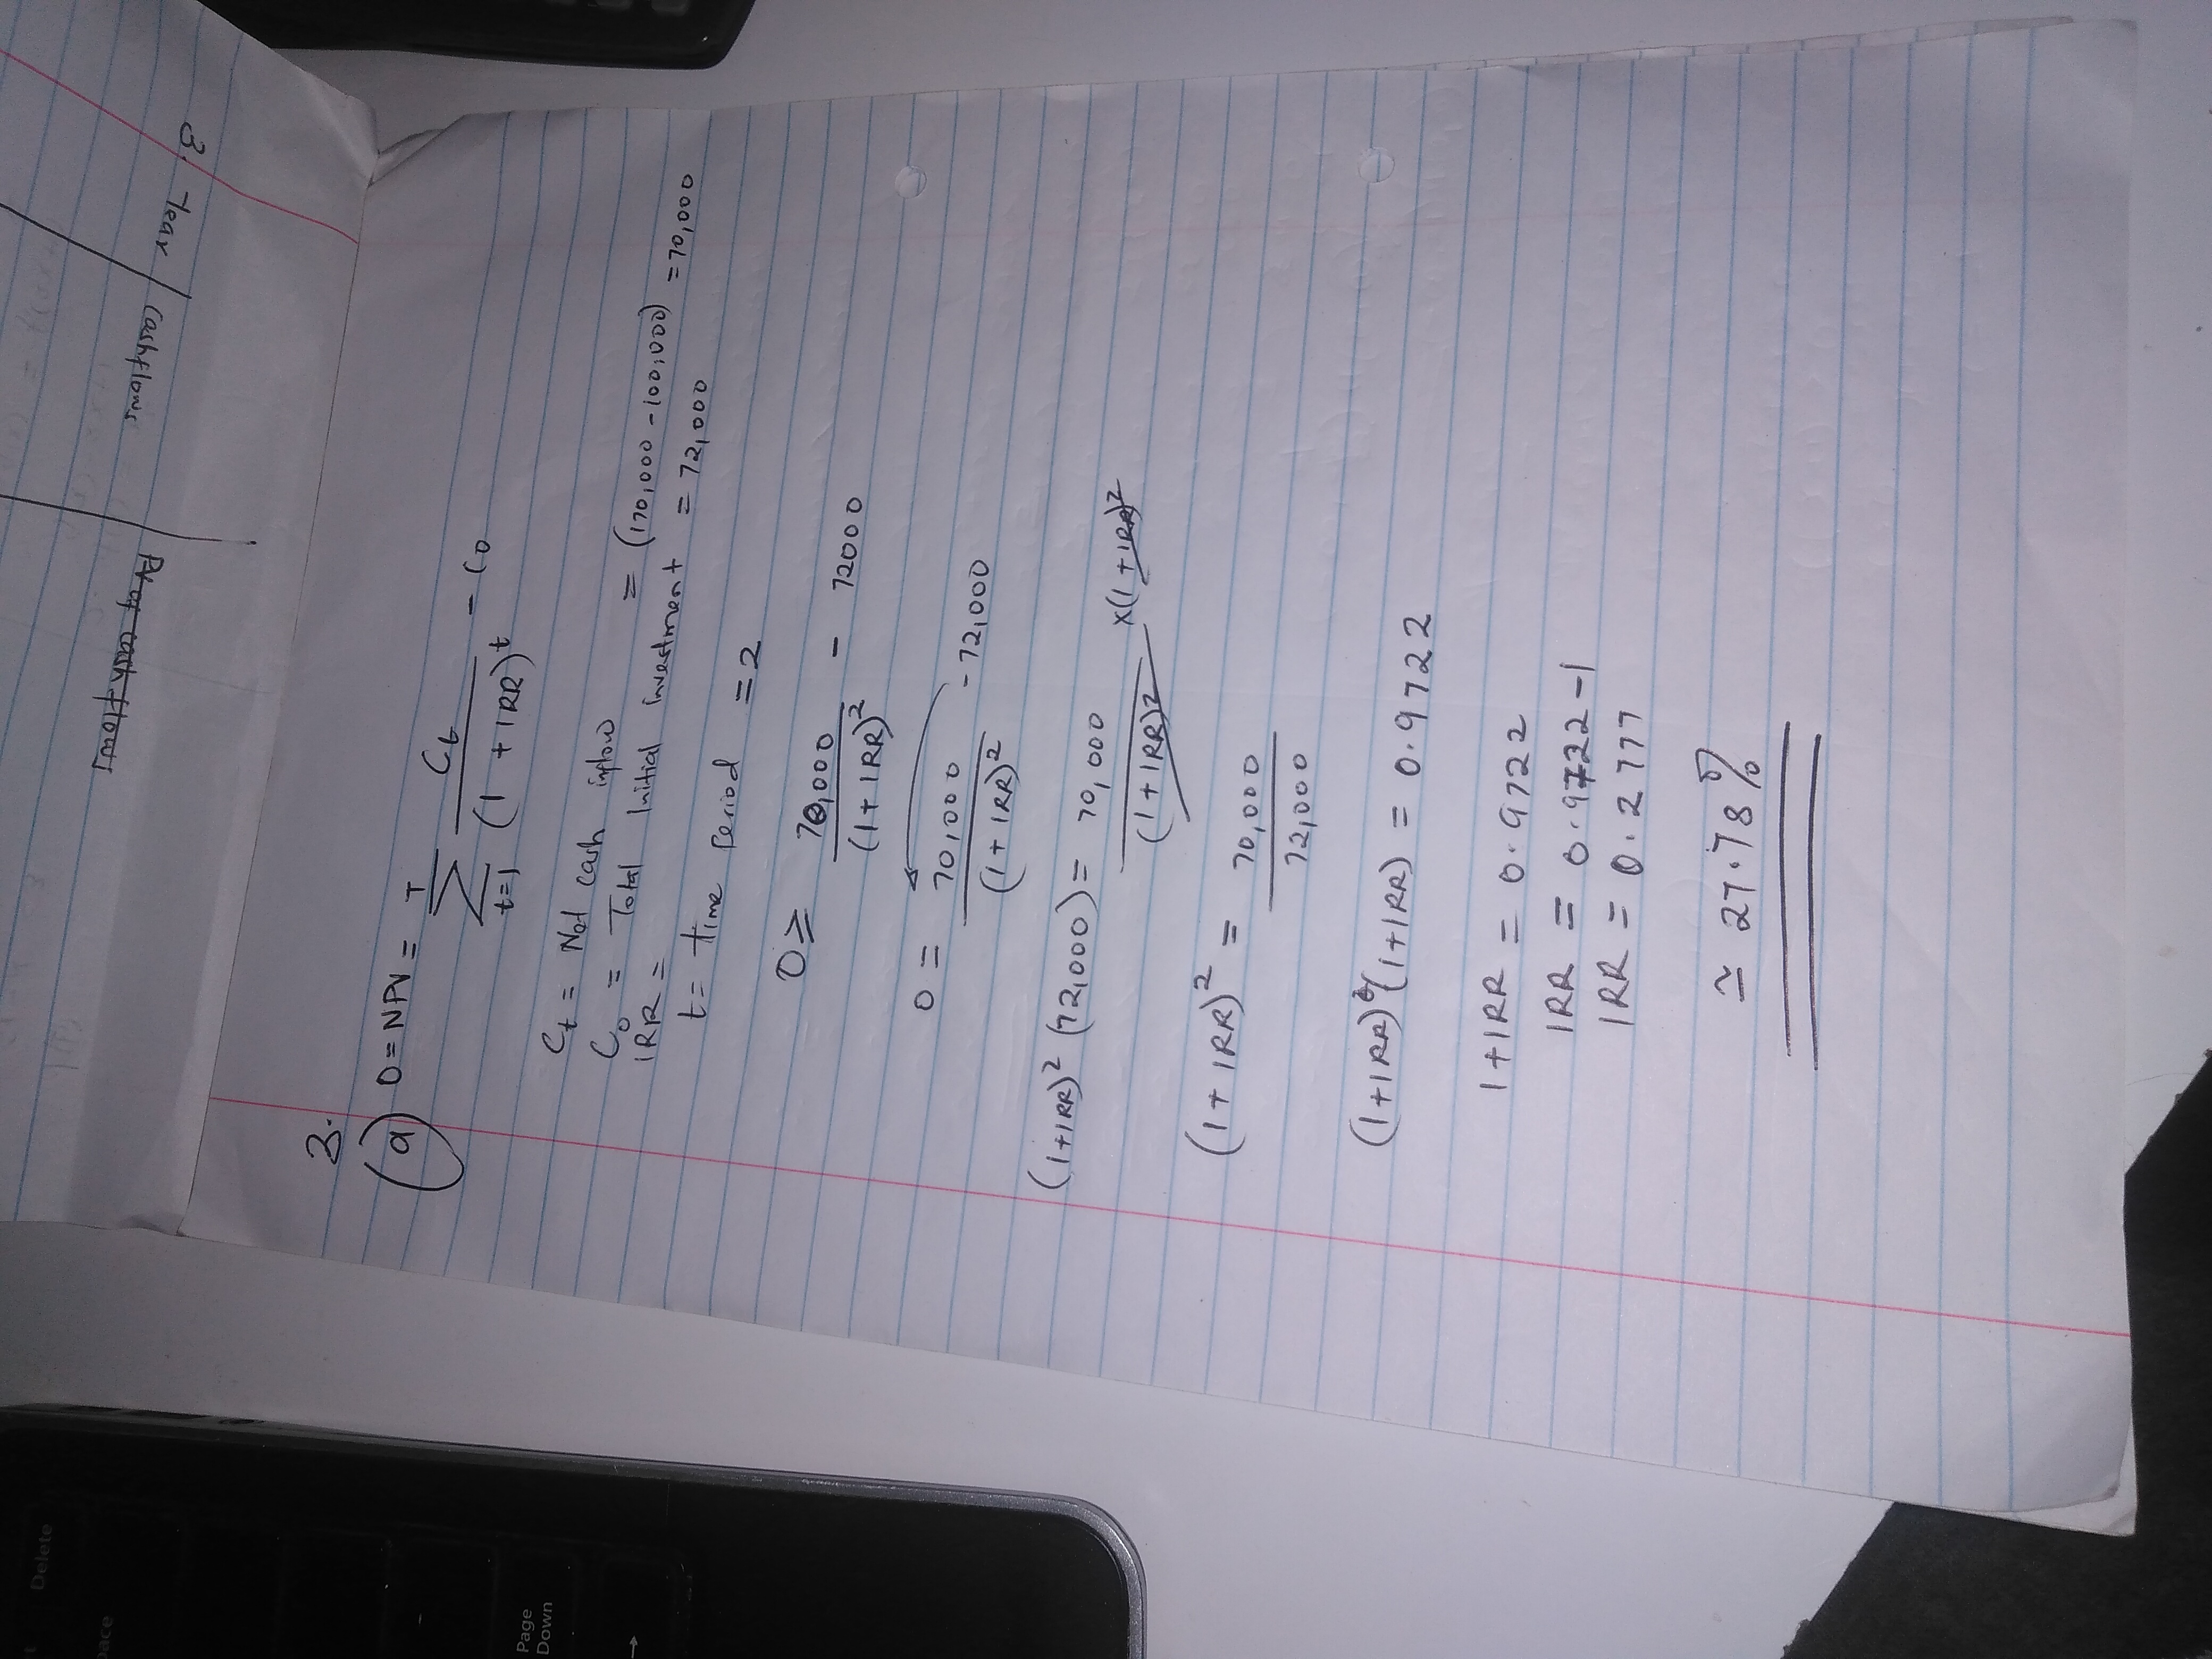 3. Year Cashflows PV of cash flows
3.
(a) 0 = NPV = T Σ t=1 Ct / (1 + IRR)^t - C0
Ct = Net cash inflow = (170,000 - 100,000) = 70,000
C0 = Total Initial investment = 72,000
IRR =
t = time period = 2
0 = 70,000 / (1 + IRR)^2 - 72000
0 = 70,000 / (1 + IRR)^2 - 72,000
(1+IRR)^2 (72,000) = 70,000 / (1+IRR)^2 x(1+IRR)^2
(1 + IRR)^2 = 70,000 / 72,000
(1+IRR) (1+IRR) = 0.9722
1+IRR = 0.9722
IRR = 0.9722-1
IRR = 0.2777
≃ 27.78%
Delete
Page
Down
→